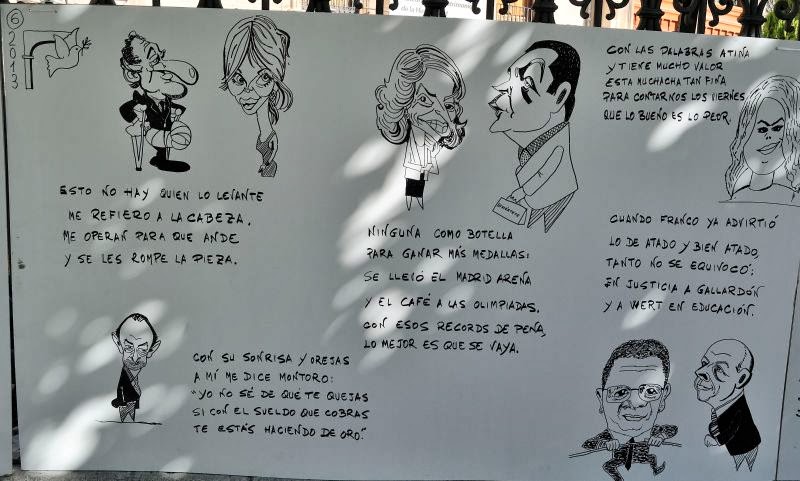 6
2013
ESTO NO HAY QUIEN LO LEVANTE
ME REFIERO A LA CABEZA.
ME OPERAN PARA QUE ANDE
Y SE LES ROMPE LA PIEZA.
CON SU SONRISA Y OREJAS
A MÍ ME DICE MONTORO:
"YO NO SÉ DE QUÉ TE QUEJAS
SI CON EL SUELDO QUE COBRAS
TE ESTÁS HACIENDO DE ORO."
NINGUNA COMO BOTELLA
PARA GANAR MÁS MEDALLAS:
SE LLEVÓ EL MADRID ARENA
Y EL CAFÉ A LAS OLIMPIADAS.
CON ESOS RECORDS DE PEÑA,
LO MEJOR ES QUE SE VAYA.
CON LAS PALABRAS ATINA
Y TIENE MUCHO VALOR
ESTA MUCHACHA TAN FINA
PARA CONTARNOS LOS VIERNES
QUE LO BUENO ES LO PEOR.
CUANDO FRANCO YA ADVIRTIÓ
LO DE ATADO Y BIEN ATADO,
TANTO NO SE EQUIVOCÓ:
EN JUSTICIA A GALLARDÓN
Y A WERT EN EDUCACIÓN.